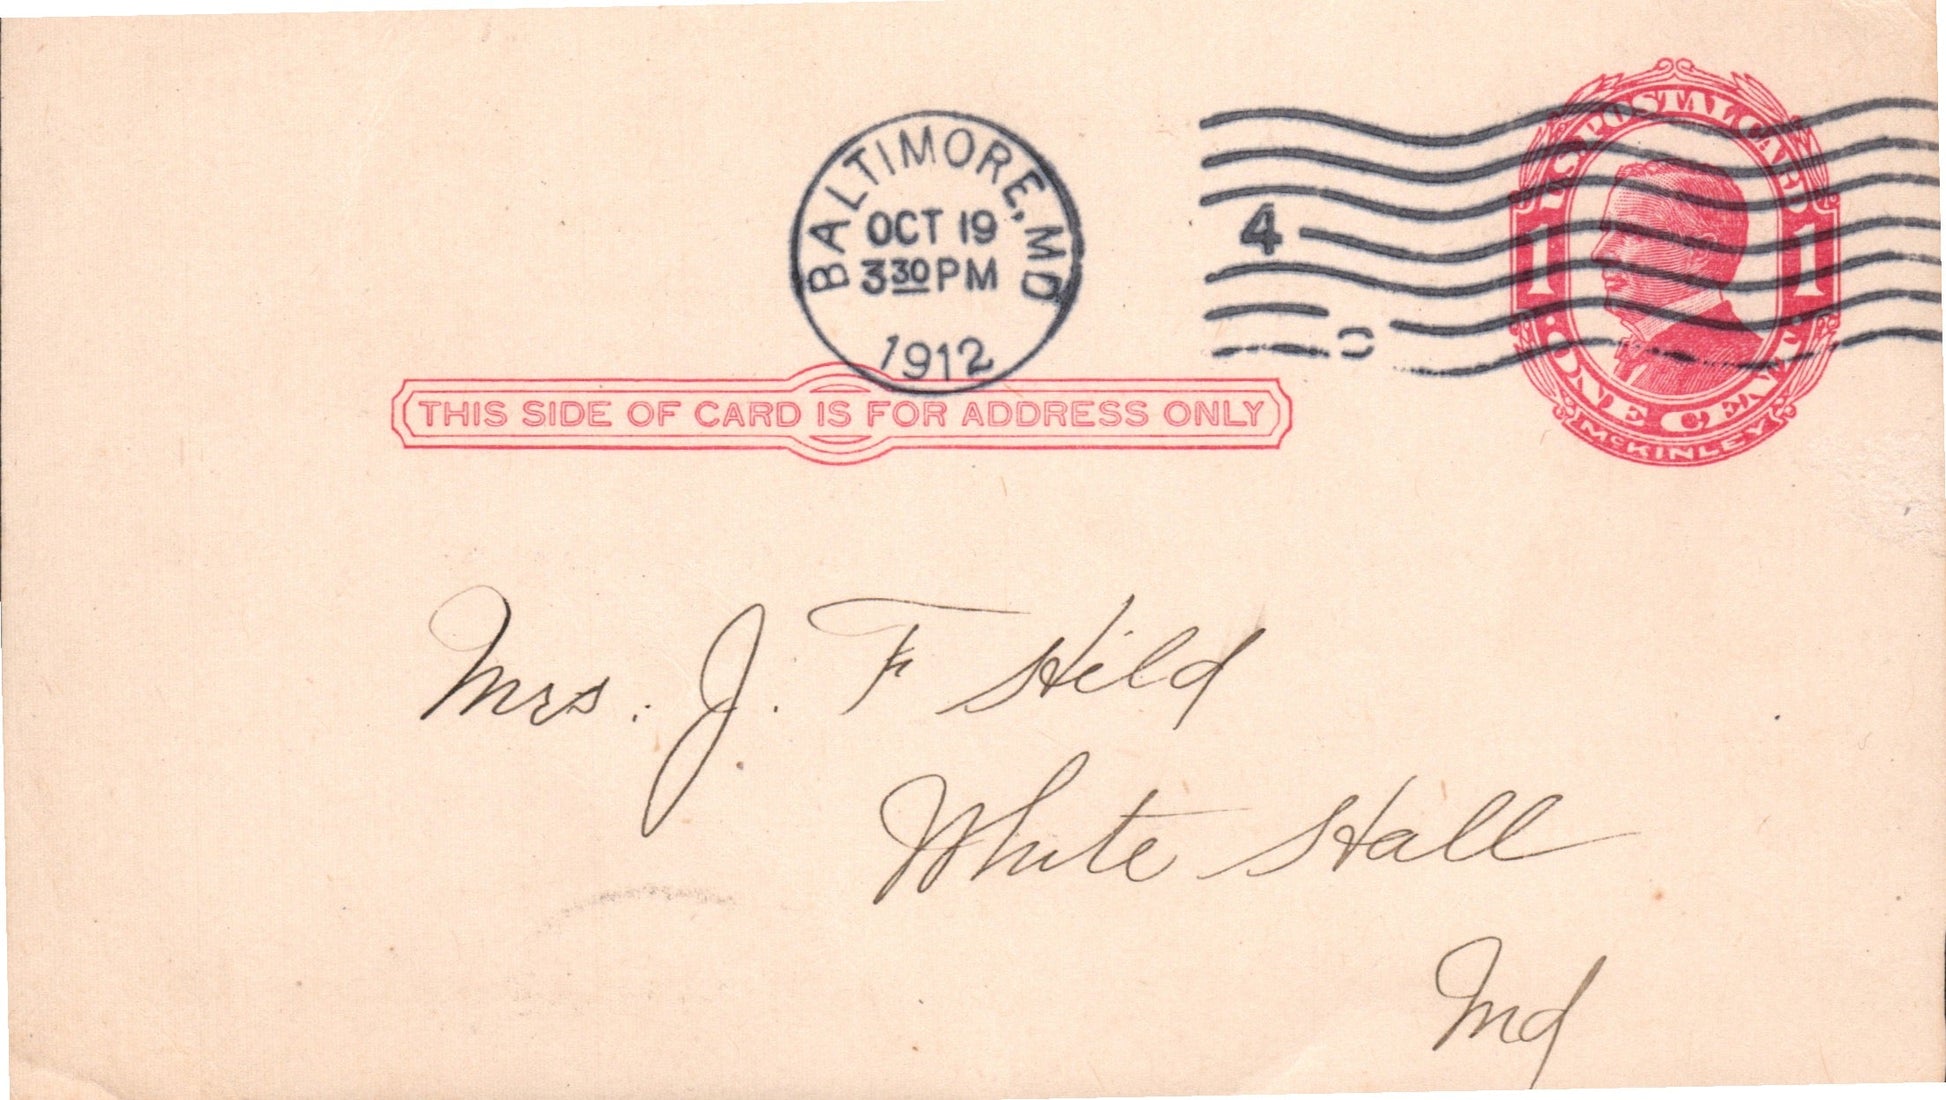 BALTIMORE, MD
OCT 19
3 30 PM
1912
4
U.S. POSTAL CARD
1 1
· ONE CENT ·
McKINLEY
THIS SIDE OF CARD IS FOR ADDRESS ONLY
Mrs. J. F Hild
White Hall
Md